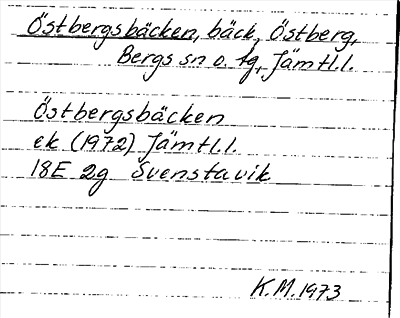 Östbergsbäcken, bäck, Östberg,
Bergs sn o. tg, Jämtl.l.
Östbergsbäcken
ek (1972) Jämtl.l.
18E 2g Svenstavik
K.M. 1973